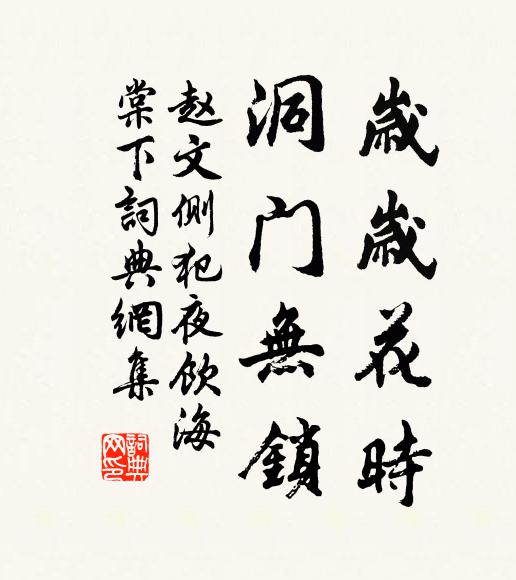 歲歲花時
洞门無鎖
赵文側犯夜飲海
棠下詞典網集
詞典
网印